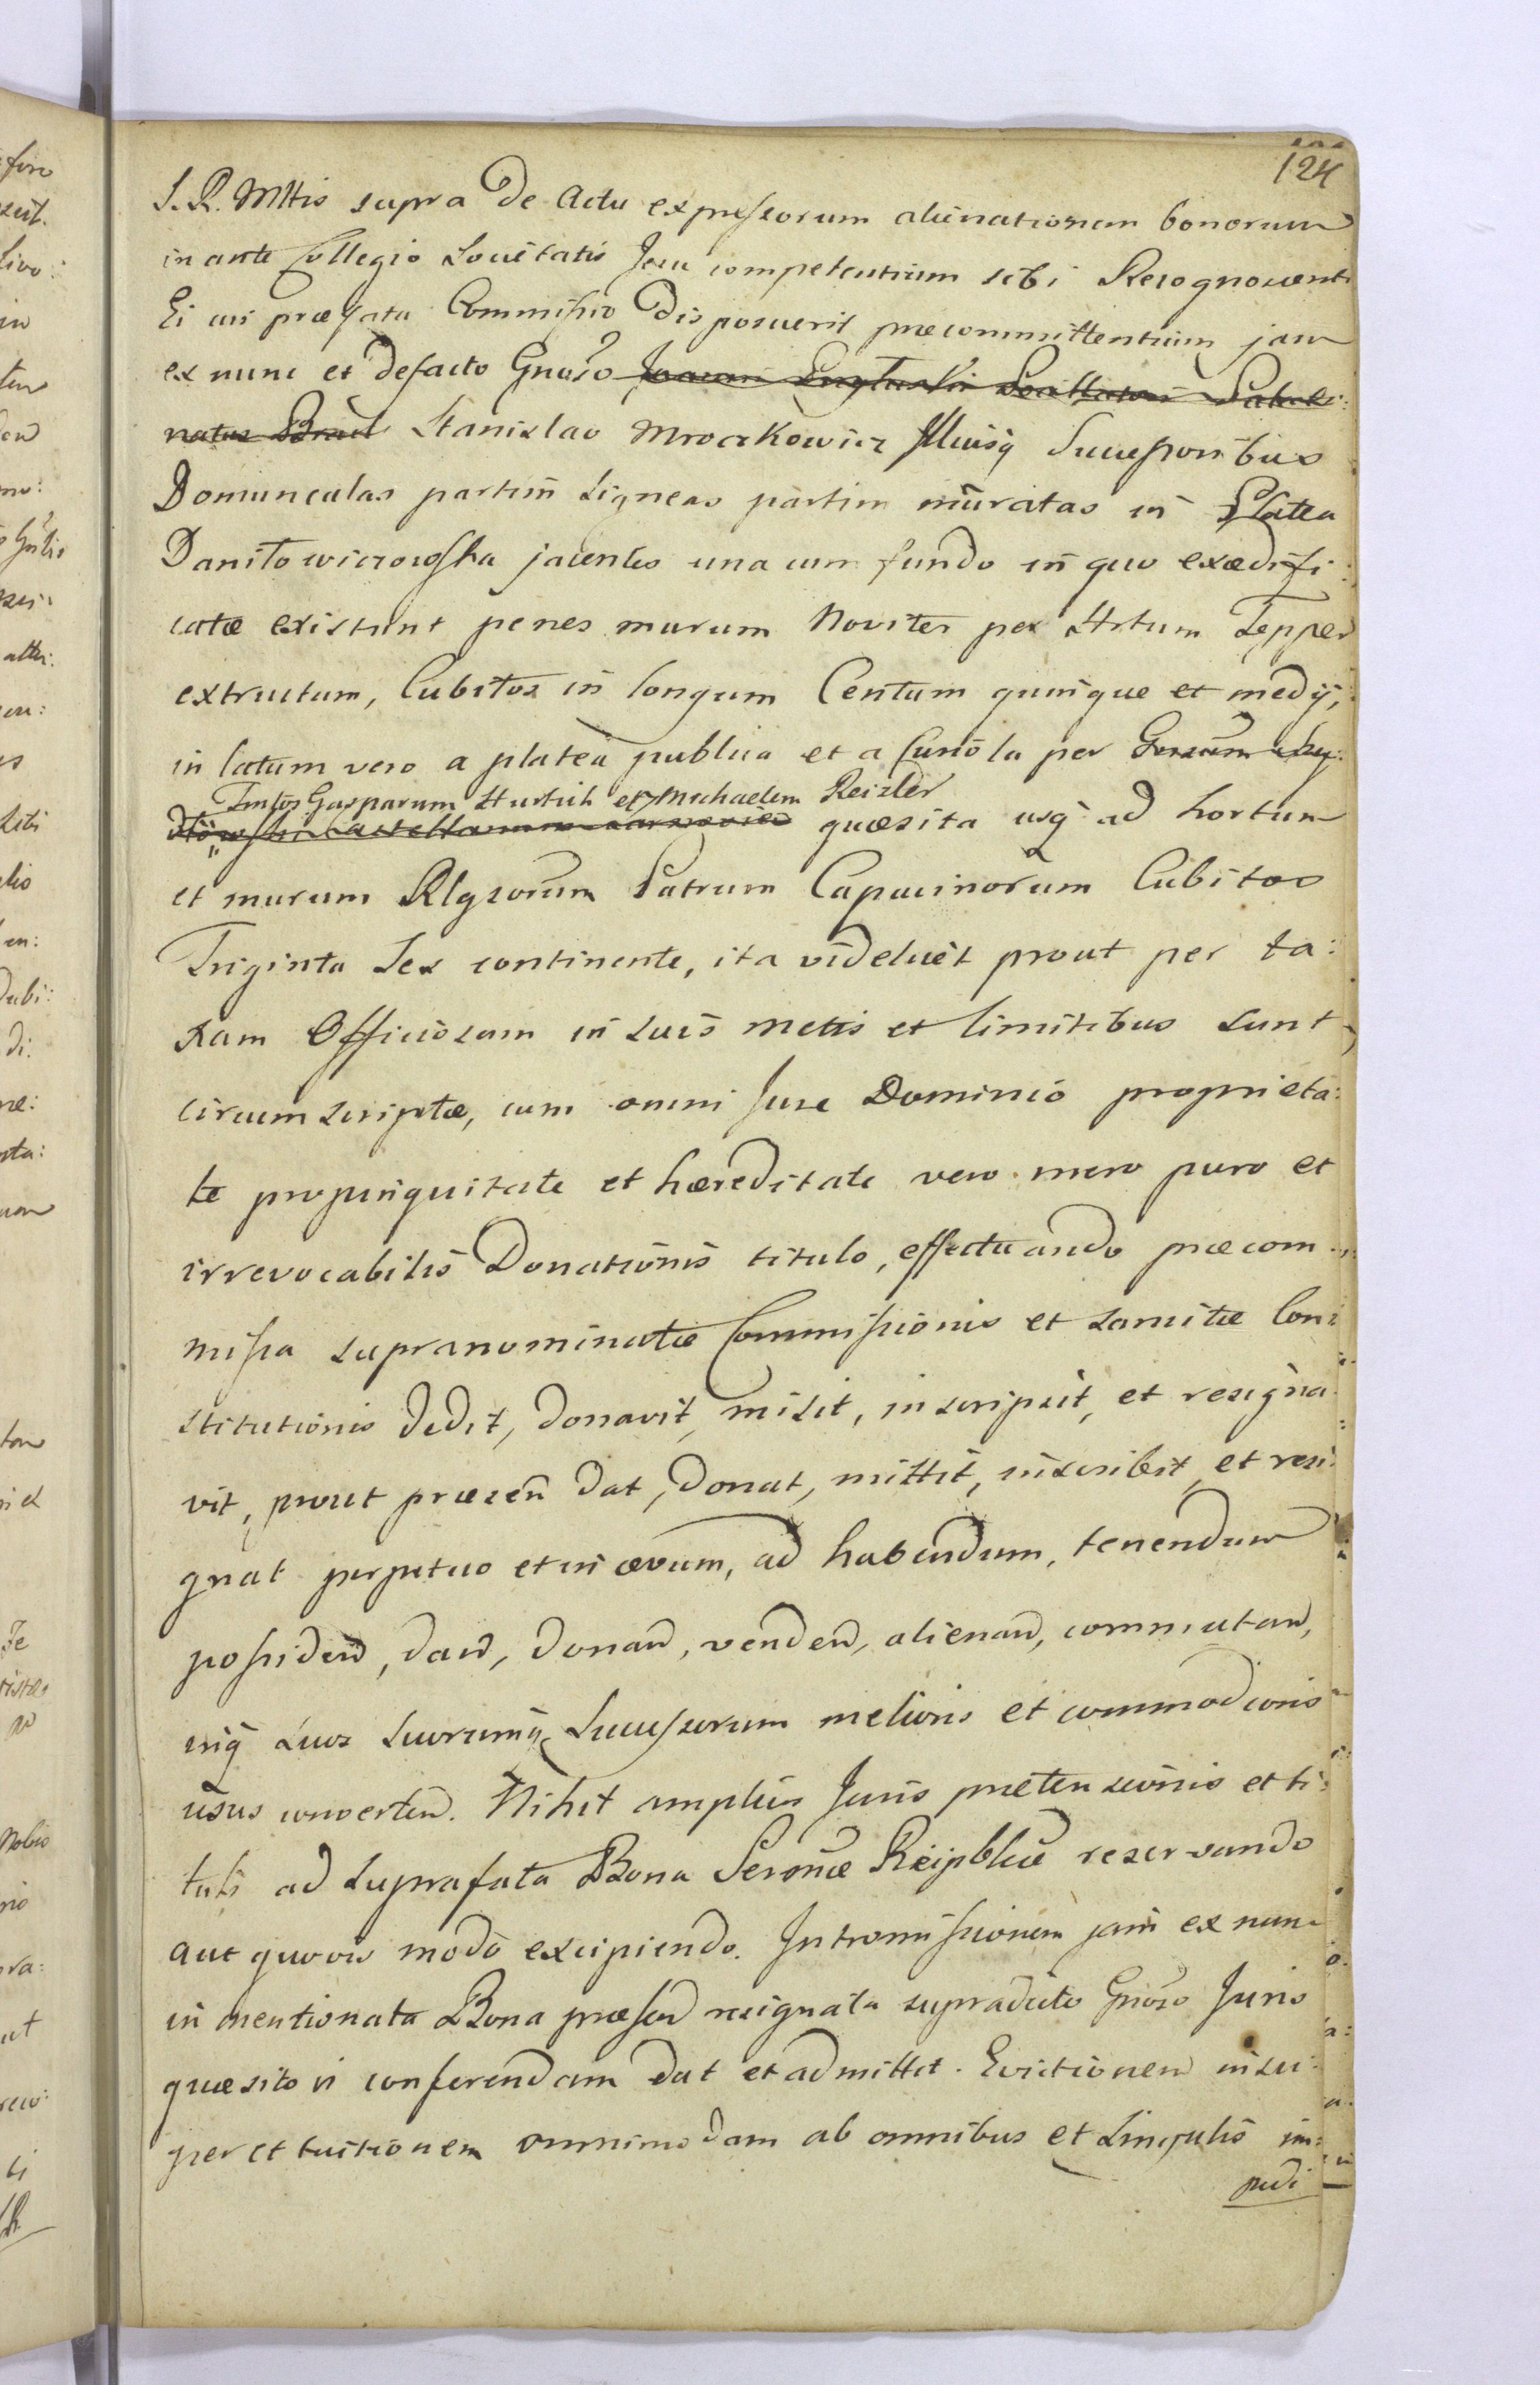 124
S. R. Mttis supra de Actu expressorum alienationem bonorum
in ante Collegio Societatis Jesu competentium sibi Recognoscenti
Ei cui præfata Commissio disposuerit præcommittentium jam
ex nunc et defacto Gnoso
natus Stanislao Mroczkowicz Illiusq Successoribus
Domunculas partim Ligneas partim muratas in Platea
Daniłowiczowska jacentes una cum fundo in quo exædifi:
catæ existunt penes murum Noviter per Strtum Tepper
extructum, Cubitos in longum Centum quinque et medij,
in latum vero a platea publica et a Curiola per
Fmtos Gasparum Hurtich et Michaelem Reizler
quæsita usq ad hortum
et murum Rlgsorum Patrum Capucinorum Cubitos
Triginta Sex continente, ita videlicèt prout per ta:
xam Officiosam in suis metis et limitibus sunt
circumscriptæ, cum omni Jure Dominio proprieta:
te propinquitate et hæreditate vero mero puro et
irrevocabilis Donationis titulo, effectuando præcom:
missa supranominatæ Commissionis et sancitæ Con:
stitutionis dedit, donavit, misit, inscripsit, et resigna:
vit, prout præsen dat, donat, mittit, inscribit, et resi:
gnat perpetuo et in ævum, ad habendum, tenendum
possidend, dand, donand, vendend, alienand, commutand,
inq suos suorumq Successorum melioris et commodioris
usus convertend. Nihil amplius Juris prætensionis et ti:
tuli ad suprafata Bona Sermæ Reipblicæ reservando
aut quovis modo excipiendo. Intromissionem jam ex nunc
in mentionata Bona præsen resignata supradicto Gnoso Juris
quæsitori conferendam dat et admittit. Evictionem insu:
per et tuitionem omnimodam ab omnibus et singulis im:
pedi